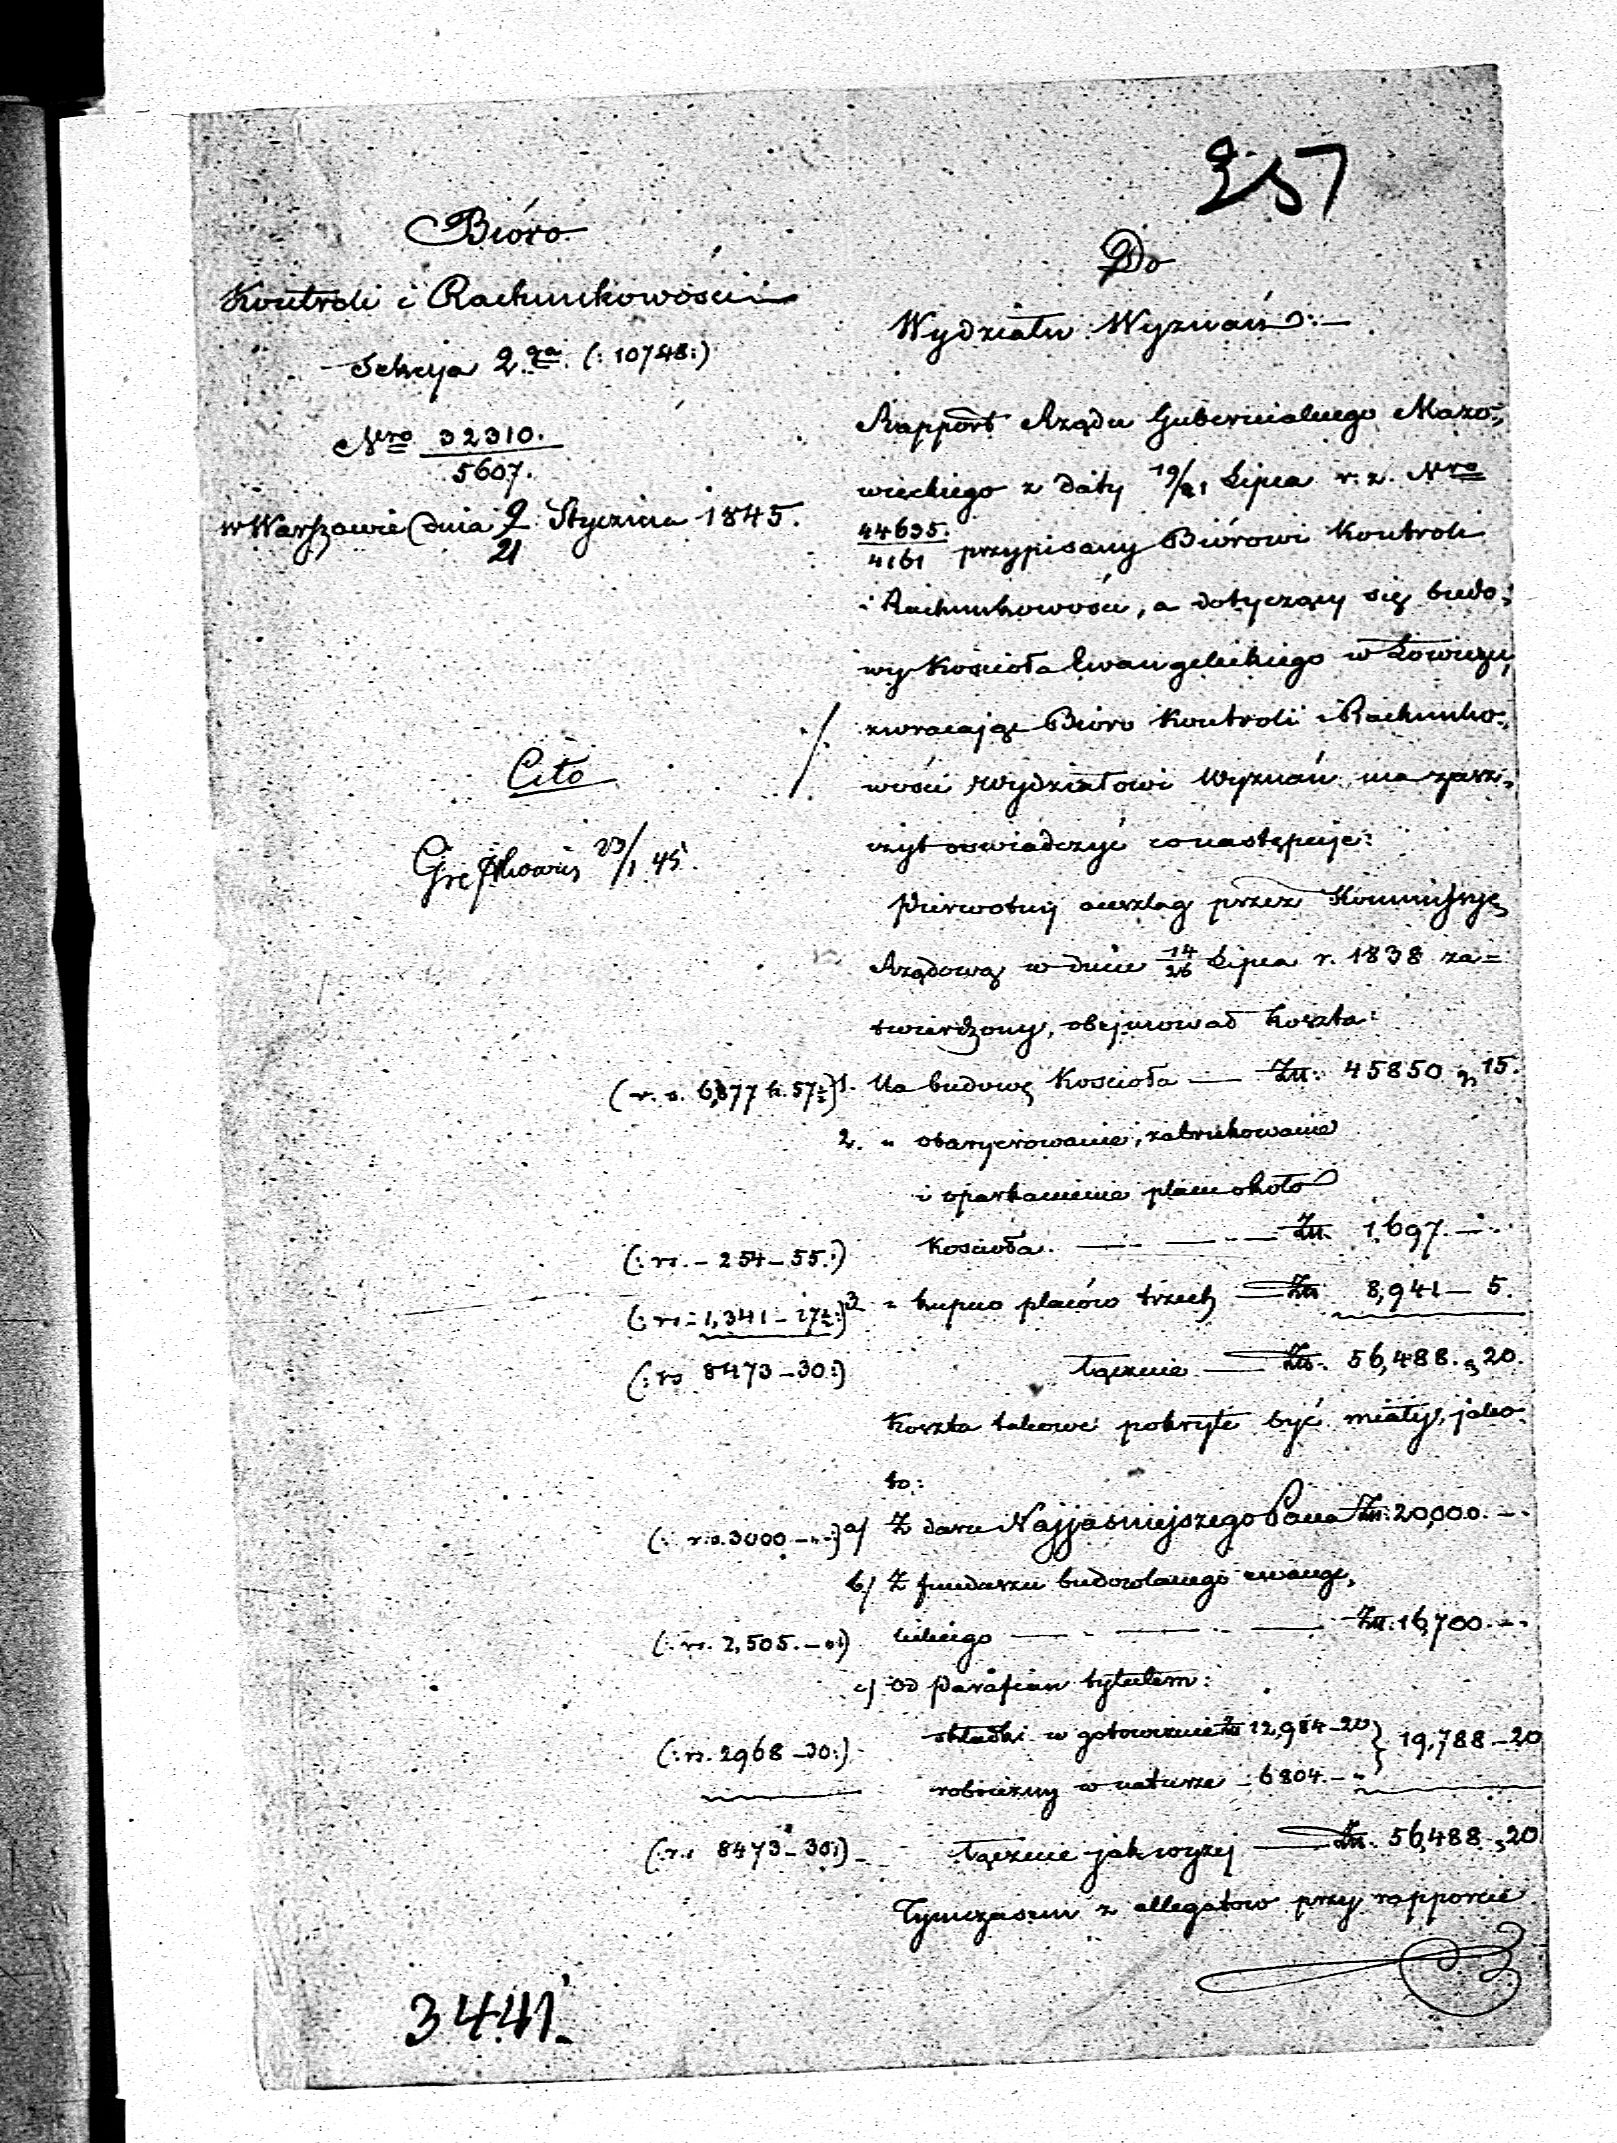 257
Bióro
Kontroli i Rachunkowości
Sekcya 2.ga (: 10748:)
Nro 32310.
5607.
w Warszawie dnia 9/21 Stycznia 1845.
Cito
23/1 45.
Do
Wydziału Wyznań.—
Rapport Rządu Gubernialnego Mazo-
wieckiego z daty 19/31 Lipca r. z. Nro
44635./4161 przypisany Biórowi Kontroli
i Rachunkowości, a dotyczący się budo-
wy Kościoła Ewangelickiego w Łowiczu,
zwracając Bióro Kontroli i Rachunko-
wości Wydziałowi Wyznań ma zasz-
czyt oświadczyć co następuje:
Pierwotny anszlag przez Kommissyę
Rządową w dniu 14/26 Lipca r. 1838 za=
twierdzony, obejmował koszta:
(r. s. 6,877 k. 57½) 1. Na budowę Kościoła — Złt. 45850 „ 15.
2. „ otarycrowanie, zabrukowanie
i oparkanienie placu około
(: rs. – 254 – 55:) Kościoła. — — — Złt. 1,697. — „
(: rs – 1,341 – 17½:) 3 „ kupno placów trzech — Złt 8,941 — 5.
(: rs 8473 – 30:) łącznie — Złt. 56,488. „ 20.
Koszta takowe pokryte być miały, jako-
to:
(: r. s. 3000 – „ –:) a/ Z daru Najjaśniejszego Pana Złt. 20,000. – „
b/ Z funduszu budowlanego ewange-
(: rs. 2,505. – „:) lickiego — — — Złt. 16,700. – „
c/ od Parafian tytułem:
składki w gotowiznie zł 12,984 – 20 } 19,788 – 20
(: rs. 2968 – 30:)
robocizny w naturze – 6804. – „
(: rs 8473 – 30:) – łącznie jak wyżej — Złt. 56,488 „ 20
Tymczasem z allegatów przy rapporcie
3441.